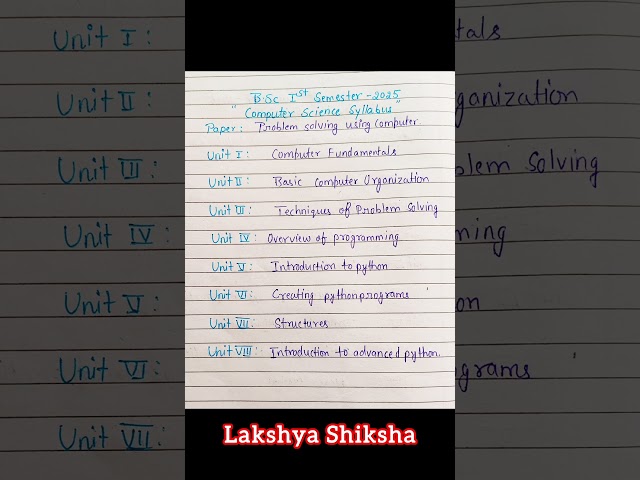 B.Sc Ist Semester-2025
"Computer Science Syllabus"
Paper: Problem solving using Computer
Unit I: Computer Fundamentals
Unit II: Basic Computer Organization
Unit III: Techniques of Problem Solving
Unit IV: Overview of programming
Unit V: Introduction to python
Unit VI: Creating python programs
Unit VII: Structures
Unit VIII: Introduction to advanced python.
Lakshya Shiksha
Unit I:
Unit II:
Unit III:
Unit IV:
Unit V:
Unit VI:
Unit VII:
tals
ganization
blem Solving
ming
on
grams